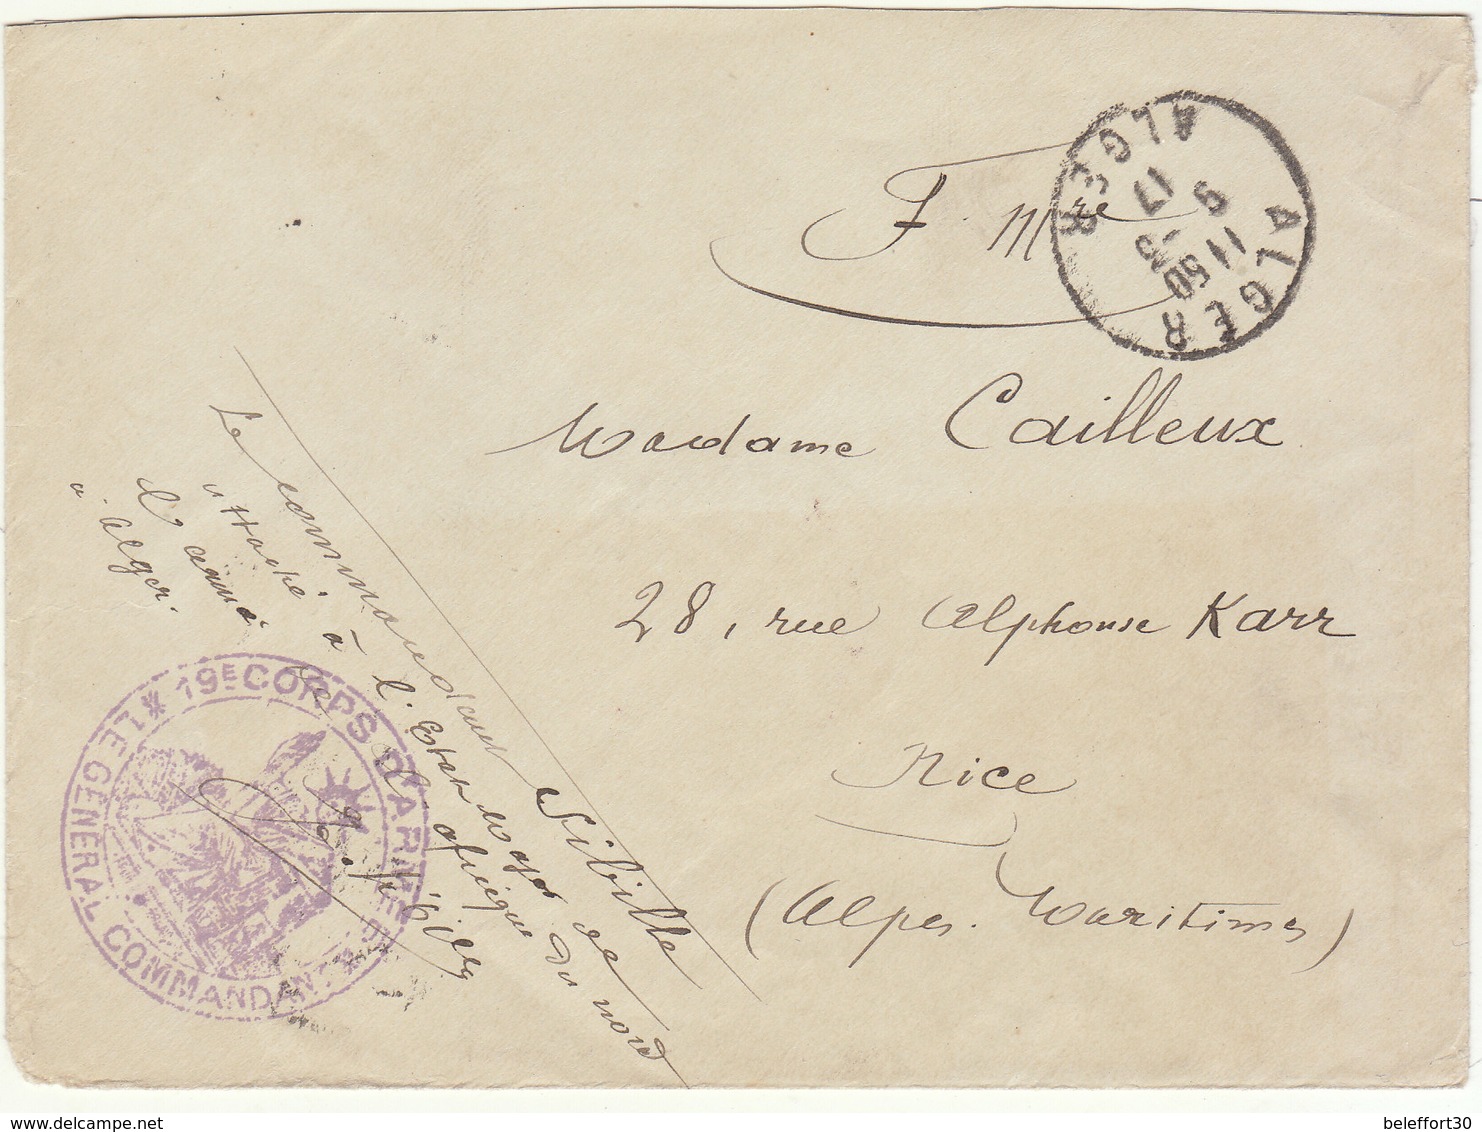 F. Mre
ALGER ALGER
11 50
17 - 3
9
Madame Cailleux
28, rue Alphonse Karr
Nice
(Alpes. Maritimes)
Le commandant Sibille
attaché à l'Etat Major de
l'armée de l'afrique du nord
à Alger.
Sibille
19E CORPS D'ARMÉE
LE GÉNÉRAL COMMANDANT
beleffort30